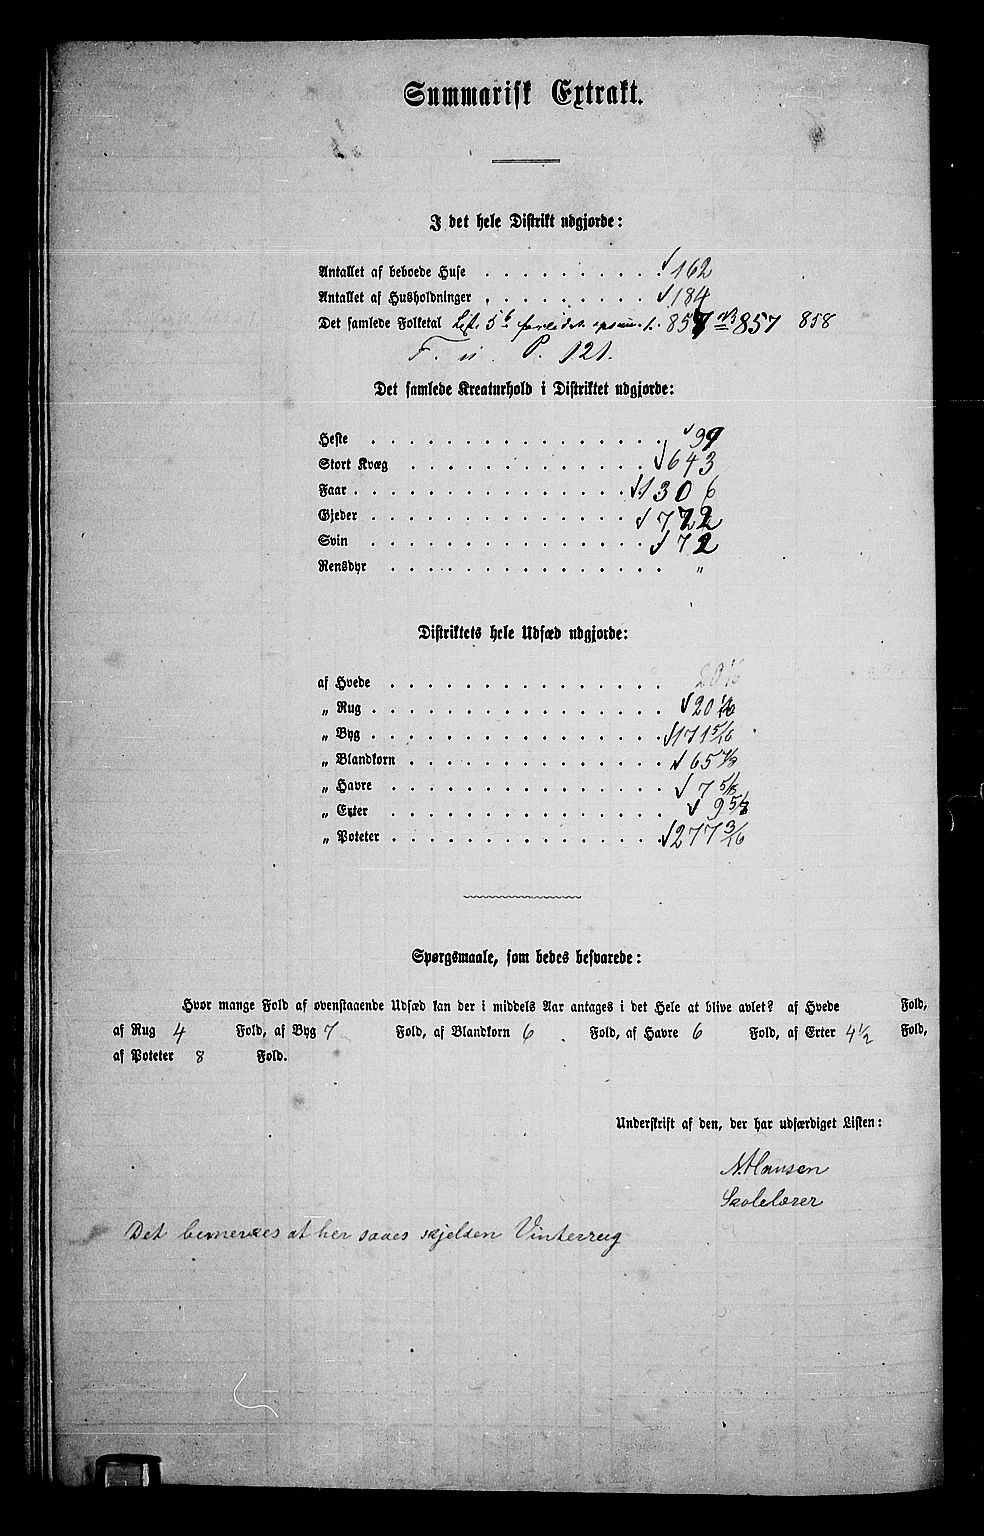 Summarisk Extrakt.
I det hele Distrikt udgjorde:
Antallet af beboede Huse . . . . . . . . . . 162
Antallet af Husholdninger . . . . . . . . . . 184
Det samlede Folketal 857 857 858
F. P. 121.
Det samlede Kreaturhold i Distriktet udgjorde:
Heste . . . . . . . . . . . . . . . . 99
Stort Kvæg . . . . . . . . . . . . . 643
Faar . . . . . . . . . . . . . . . . 1306
Gjeder . . . . . . . . . . . . . . . 772
Svin . . . . . . . . . . . . . . . . 72
Rensdyr . . . . . . . . . . . . . . . "
Distriktets hele Udsæd udgjorde:
af Hvede . . . . . . . . . . . . . . .
„ Rug . . . . . . . . . . . . . . . . 20 1/16
„ Byg . . . . . . . . . . . . . . . . 171 5/16
„ Blandkorn . . . . . . . . . . . . . 65 7/8
„ Havre . . . . . . . . . . . . . . . 7 5/8
„ Erter . . . . . . . . . . . . . . . 9 5/8
„ Poteter . . . . . . . . . . . . . . 277 3/16
Spørgsmaale, som bedes besvarede:
Hvor mange Fold af ovenstaaende Udsæd kan der i middels Aar antages i det Hele at blive avlet? af Hvede Fold,
af Rug 4 Fold, af Byg 7 Fold, af Blandkorn 6 Fold, af Havre 6 Fold, af Erter 4½ Fold,
af Poteter 8 Fold.
Underskrift af den, der har udfærdiget Listen:
N. Hansen
Skolelærer
Det bemerkes at her saaes sjelden Vinterrug